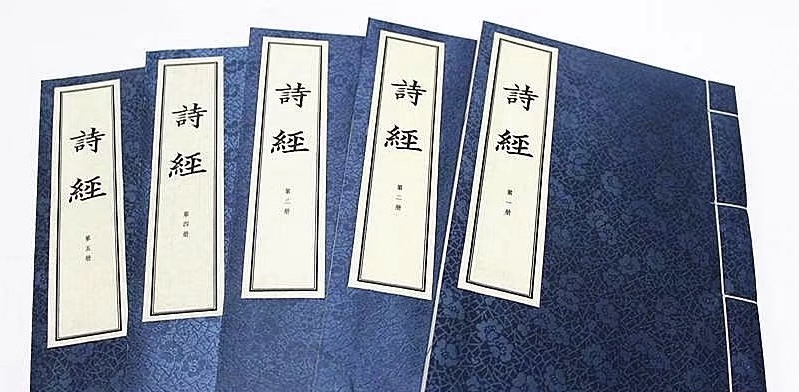 詩經
第一册
詩經
第二册
詩經
第三册
詩經
第四册
詩經
第五册